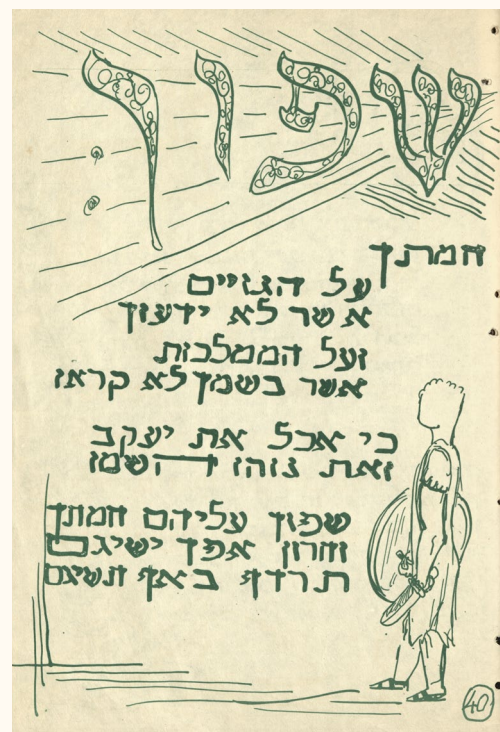 שפוך:
חמתך
על הגויים
אשר לא ידעוך
ועל הממלכות
אשר בשמך לא קראו
כי אכל את יעקב
ואת נוהו השמו
שפוך עליהם חמתך
וחרון אפך ישיגם
תרדף באף
40